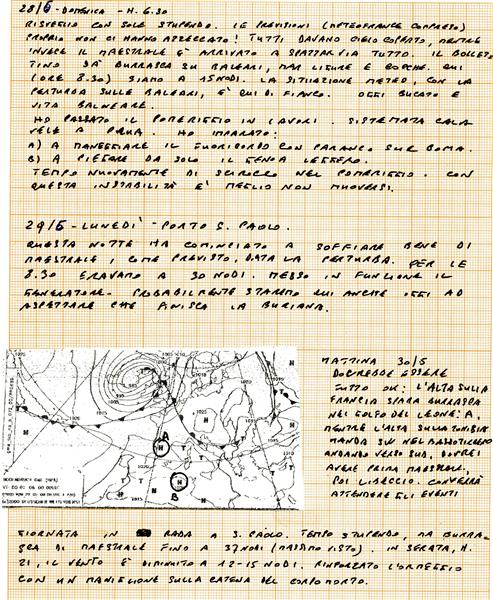 28/5 - DOMENICA - H. 6.30
RISVEGLIO CON SOLE STUPENDO. LE PREVISIONI (METEOFRANCE COMPRESO)
PROPRIO NON CI HANNO AZZECCATO! TUTTI DAVANO CIELO COPERTO, MENTRE
INVECE IL MAESTRALE È ARRIVATO A SPAZZAR VIA TUTTO. IL BOLLET-
TINO DÀ BURRASCA SU BALEARI, MAR LIGURE E BOCCHE. QUI
(ORE 8.30) SIAMO A 15 NODI. LA SITUAZIONE METEO, CON LA
PERTURBA SULLE BALEARI, È QUI DI FIANCO. OGGI BUCATO E
VITA BALNEARE.
HO PASSATO IL POMERIGGIO IN LAVORI. SISTEMATA CALA
VELE A PRUA. HO IMPARATO:
A) A MANEGGIARE IL FUORIBORDO CON PARANCO SUL BOMA.
B) A PIEGARE DA SOLO IL GENOA LEGGERO.
TEMPO NUOVAMENTE DI SCIROCCO NEL POMERIGGIO. CON
QUESTA INSTABILITÀ È MEGLIO NON MUOVERSI.
29/5 - LUNEDÌ - PORTO S. PAOLO.
QUESTA NOTTE HA COMINCIATO A SOFFIARE BENE DI
MAESTRALE, COME PREVISTO, DATA LA PERTURBA. PER LE
8.30 ERAVAMO A 30 NODI. MESSO IN FUNZIONE IL
GENERATORE. PROBABILMENTE STAREMO QUI ANCHE OGGI AD
ASPETTARE CHE FINISCA LA BURIANA.
MATTINA 30/5
DOVREBBE ESSERE
TUTTO OK: L'ALTA SULLA
FRANCIA SPARA BURRASCA
NEL GOLFO DEL LEONE: A,
MENTRE L'ALTA SULLA TUNISIA
MANDA SU NEL
ANDANDO VERSO SUD, DOVREI
AVERE PRIMA MAESTRALE,
POI LIBECCIO. CONVERRÀ
ATTENDERE GLI EVENTI
A
B
GIORNATA IN RADA A S. PAOLO. TEMPO STUPENDO, MA BURRA-
SCA DI MAESTRALE FINO A 37 NODI (MASSIMO VISTO). IN SERATA, H.
21, IL VENTO È DIMINUITO A 12-15 NODI. RINFORZATO L'ORMEGGIO
CON UN MANIGLIONE SULLA CATENA DEL CORPO MORTO.